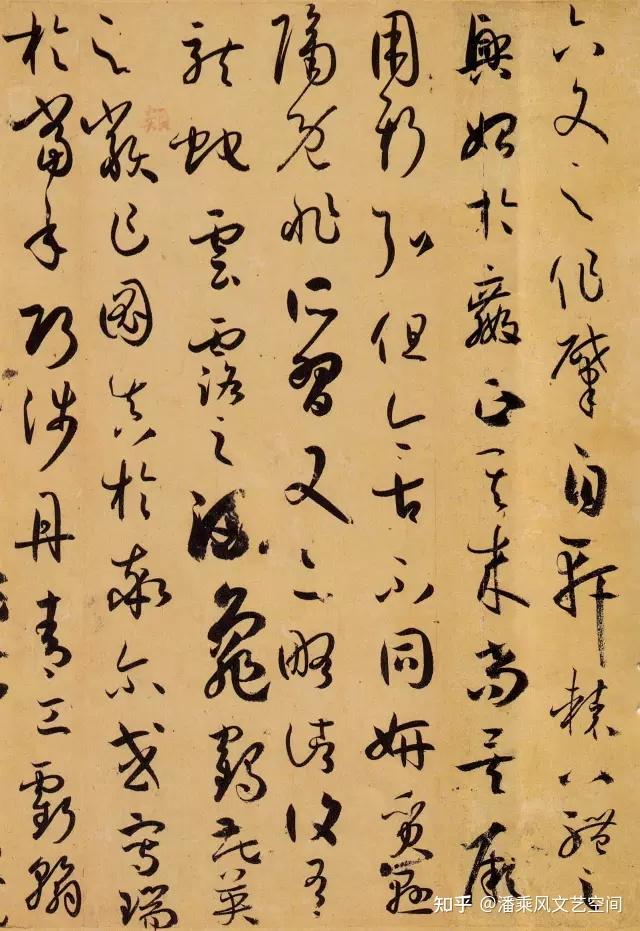 六文之作肇自軒轅八體之
興始於嬴政其來尚矣厥
用斯弘但今古不同妍質懸
隔既非所習又亦略諸復有
龍蛇雲露之流龜鶴花英
之類乍圖真於率爾或寫瑞
於當年巧涉丹青工虧翰
知乎 @潘乘风文艺空间